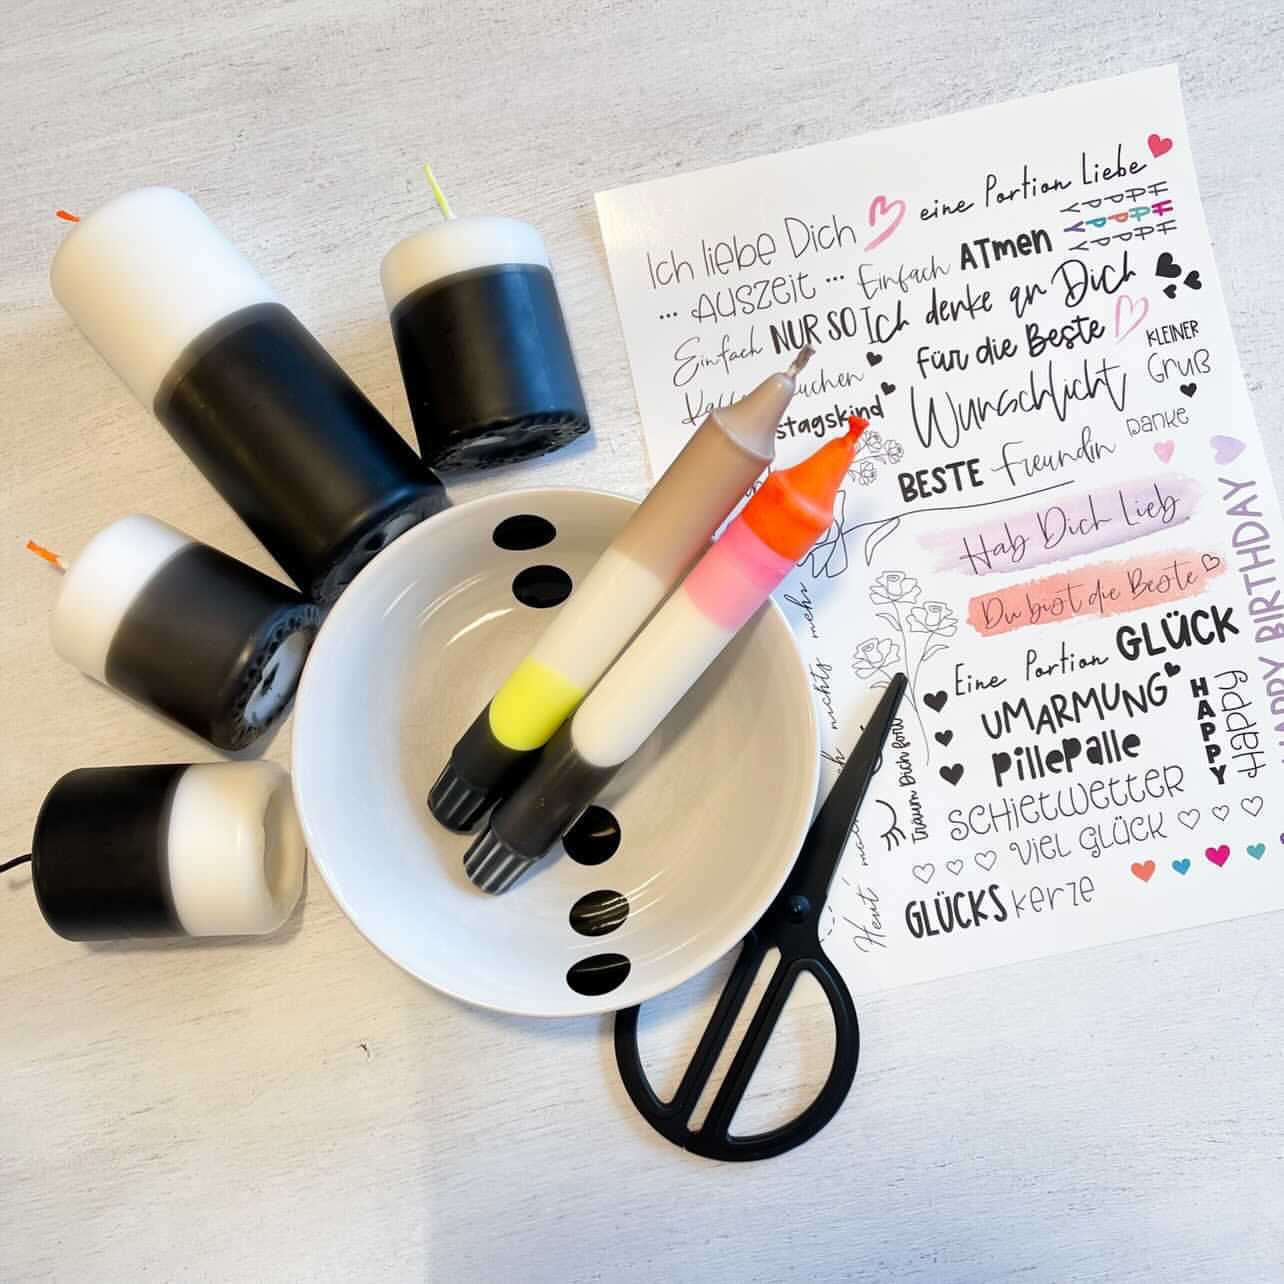 Ich liebe Dich
eine Portion Liebe
HAPPY
HAPPY
HAPPY
... AUSZEIT ...
Einfach ATmen
Einfach NUR SO
Ich denke an Dich
Für die Beste
KLEINER
Gruß
stagskind
Wunschlicht
Danke
BESTE Freundin
Hab Dich Lieb
Du bist die Beste
Eine Portion GLÜCK
UMARMUNG
Pillepalle
HAPPY
Happy
SCHIETWETTER
VIEL GLÜCK
GLÜCKS kerze
Traum Dich fort
nichts mehr
Heut'
HAPPY BIRTHDAY